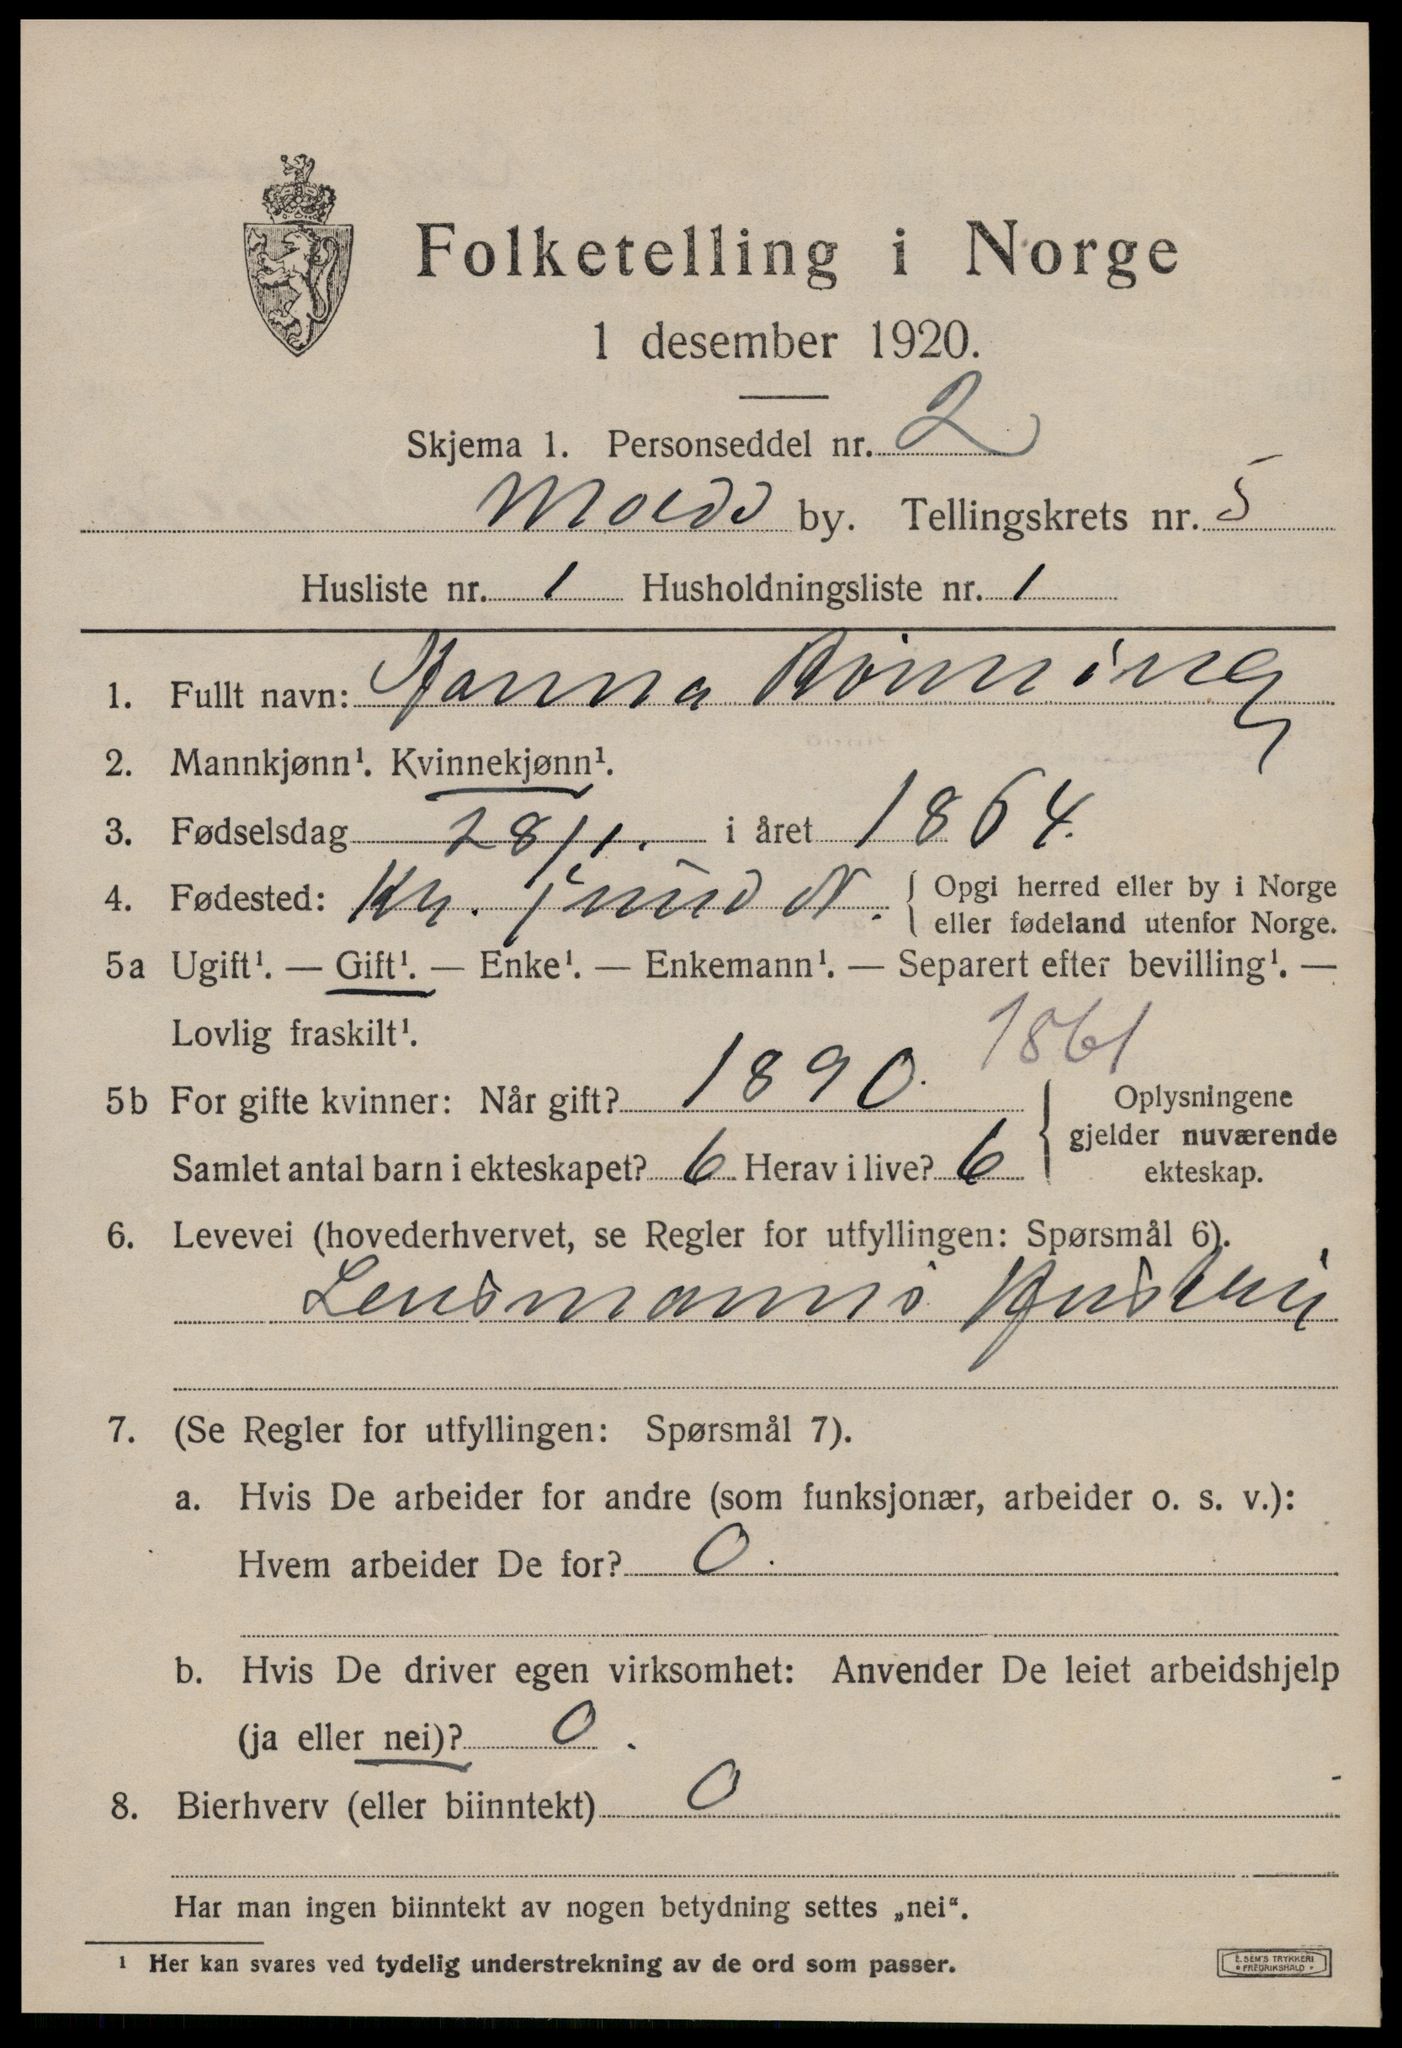 Folketelling i Norge
1 desember 1920.
Skjema 1. Personseddel nr. 2
Molde by. Tellingskrets nr. 5
Husliste nr. 1 Husholdningsliste nr. 1
1. Fullt navn: Hanna Rønning
2. Mannkjønn¹. Kvinnekjønn¹.
3. Fødselsdag 28/1. i året 1864.
4. Fødested: Kr. sund N. { Opgi herred eller by i Norge
eller fødeland utenfor Norge.
5a Ugift¹. — Gift¹. — Enke¹. — Enkemann¹. — Separert efter bevilling¹. —
Lovlig fraskilt¹.
1861
5b For gifte kvinner: Når gift? 1890. } Oplysningene
gjelder nuværende
Samlet antal barn i ekteskapet? 6 Herav i live? 6 ekteskap.
6. Levevei (hovederhvervet, se Regler for utfyllingen: Spørsmål 6).
Lensmanns Hustru
7. (Se Regler for utfyllingen: Spørsmål 7).
a. Hvis De arbeider for andre (som funksjonær, arbeider o. s. v.):
Hvem arbeider De for? 0.
b. Hvis De driver egen virksomhet: Anvender De leiet arbeidshjelp
(ja eller nei)? 0.
8. Bierhverv (eller biinntekt) 0
Har man ingen biinntekt av nogen betydning settes „nei“.
¹ Her kan svares ved tydelig understrekning av de ord som passer.
E. SEM'S TRYKKERI
• FREDRIKSHALD •